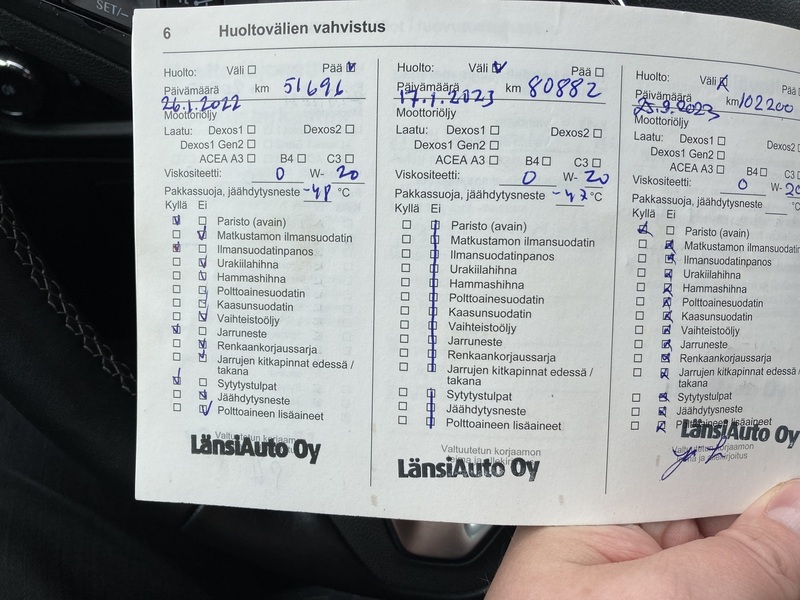 SET/-
6 Huoltovälien vahvistus
Huolto: Väli ☐ Pää ☑
Päivämäärä km 51696
26.1.2022
Moottoriöljy
Laatu: Dexos1 ☐ Dexos2 ☐
Dexos1 Gen2 ☐
ACEA A3 ☐ B4 ☐ C3 ☐
Viskositeetti: 0 W- 20
Pakkassuoja, jäähdytysneste °C
Kyllä Ei
☑ ☐ Paristo (avain)
☐ ☑ Matkustamon ilmansuodatin
☑ ☐ Ilmansuodatinpanos
☐ ☑ Urakiilahihna
☐ ☑ Hammashihna
☐ ☑ Polttoainesuodatin
☐ ☑ Kaasunsuodatin
☐ ☑ Vaihteistoöljy
☑ ☐ Jarruneste
☐ ☑ Renkaankorjaussarja
☐ ☑ Jarrujen kitkapinnat edessä /
takana
☑ ☐ Sytytystulpat
☐ ☑ Jäähdytysneste
☐ ☑ Polttoaineen lisäaineet
Valtuutetun korjaamon
LänsiAuto Oy
Huolto: Väli ☑ Pää ☐
Päivämäärä km 80882
17.1.2023
Moottoriöljy
Laatu: Dexos1 ☐ Dexos2 ☐
Dexos1 Gen2 ☐
ACEA A3 ☐ B4 ☐ C3 ☐
Viskositeetti: 0 W- 20
Pakkassuoja, jäähdytysneste -47 °C
Kyllä Ei
☐ ☑ Paristo (avain)
☐ ☑ Matkustamon ilmansuodatin
☐ ☑ Ilmansuodatinpanos
☐ ☑ Urakiilahihna
☐ ☑ Hammashihna
☐ ☑ Polttoainesuodatin
☐ ☑ Kaasunsuodatin
☐ ☑ Vaihteistoöljy
☐ ☑ Jarruneste
☐ ☑ Renkaankorjaussarja
☐ ☑ Jarrujen kitkapinnat edessä /
takana
☐ ☑ Sytytystulpat
☐ ☑ Jäähdytysneste
☐ ☑ Polttoaineen lisäaineet
Valtuutetun korjaamon
LänsiAuto Oy
Huolto: Väli ☑ Pää ☐
Päivämäärä km 102200
25.9.2023
Moottoriöljy
Laatu: Dexos1 ☐ Dexos2
Dexos1 Gen2 ☐
ACEA A3 ☐ B4 ☐ C3
Viskositeetti: 0 W- 20
Pakkassuoja, jäähdytysneste
Kyllä Ei
☑ ☐ Paristo (avain)
☐ ☑ Matkustamon ilmansuodatin
☐ ☑ Ilmansuodatinpanos
☐ ☑ Urakiilahihna
☐ ☑ Hammashihna
☐ ☑ Polttoainesuodatin
☐ ☑ Kaasunsuodatin
☐ ☑ Vaihteistoöljy
☐ ☑ Jarruneste
☐ ☑ Renkaankorjaussarja
☐ ☑ Jarrujen kitkapinnat edessä /
takana
☐ ☑ Sytytystulpat
☐ ☑ Jäähdytysneste
☐ ☑ Polttoaineen lisäaineet
LänsiAuto Oy
Valtuutetun korjaamon
leima ja allekirjoitus